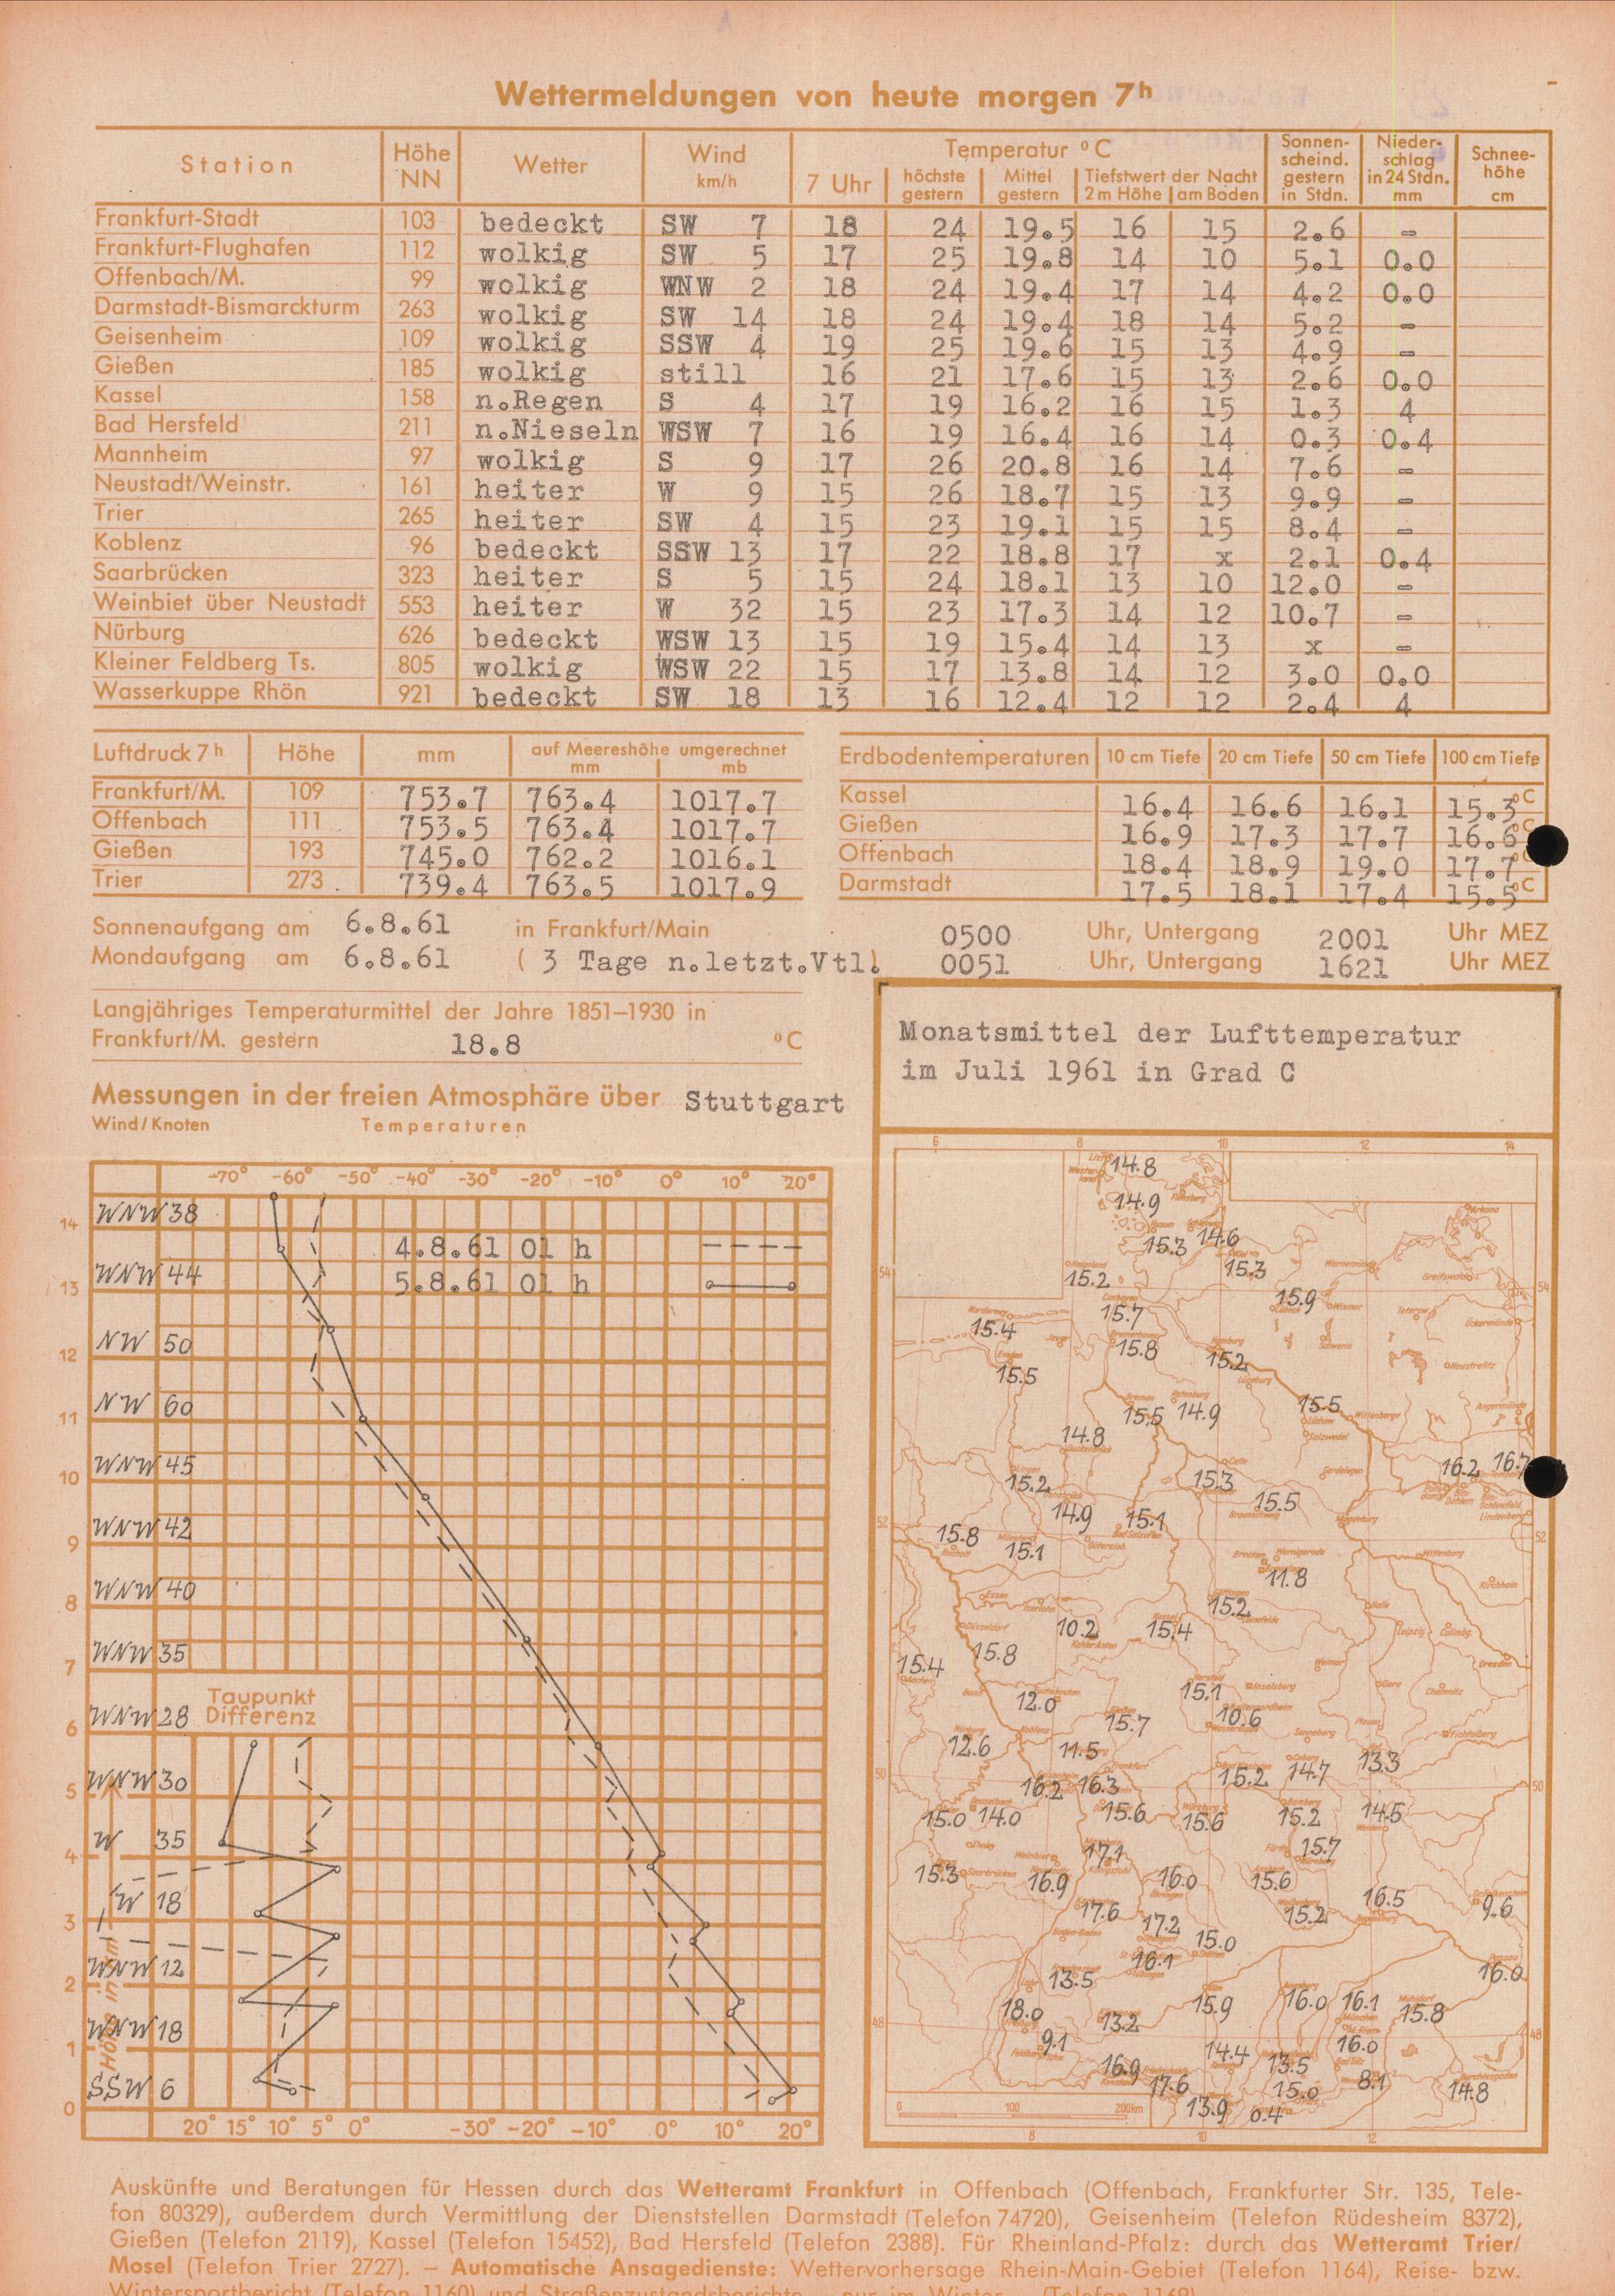 Wettermeldungen von heute morgen 7h
Station Höhe NN Wetter Wind km/h Temperatur °C 7 Uhr höchste gestern Mittel gestern Tiefstwert der Nacht 2 m Höhe am Boden Sonnen-scheind. gestern in Stdn. Nieder-schlag in 24 Stdn. mm Schnee-höhe cm
Frankfurt-Stadt 103 bedeckt SW 7 18 24 19.5 16 15 2.6 -
Frankfurt-Flughafen 112 wolkig SW 5 17 25 19.8 14 10 5.1 0.0
Offenbach/M. 99 wolkig WNW 2 18 24 19.4 17 14 4.2 0.0
Darmstadt-Bismarckturm 263 wolkig SW 14 18 24 19.4 18 14 5.2 -
Geisenheim 109 wolkig SSW 4 19 25 19.6 15 13 4.9 -
Gießen 185 wolkig still 16 21 17.6 15 13 2.6 0.0
Kassel 158 n.Regen S 4 17 19 16.2 16 15 1.3 4
Bad Hersfeld 211 n.Nieseln WSW 7 16 19 16.4 16 14 0.3 0.4
Mannheim 97 wolkig S 9 17 26 20.8 16 14 7.6 -
Neustadt/Weinstr. 161 heiter W 9 15 26 18.7 15 13 9.9 -
Trier 265 heiter SW 4 15 23 19.1 15 15 8.4 -
Koblenz 96 bedeckt SSW 13 17 22 18.8 17 x 2.1 0.4
Saarbrücken 323 heiter S 5 15 24 18.1 13 10 12.0 -
Weinbiet über Neustadt 553 heiter W 32 15 23 17.3 14 12 10.7 -
Nürburg 626 bedeckt WSW 13 15 19 15.4 14 13 x -
Kleiner Feldberg Ts. 805 wolkig WSW 22 15 17 13.8 14 12 3.0 0.0
Wasserkuppe Rhön 921 bedeckt SW 18 13 16 12.4 12 12 2.4 4
Luftdruck 7h Höhe mm auf Meereshöhe umgerechnet mm mb
Frankfurt/M. 109 753.7 763.4 1017.7
Offenbach 111 753.5 763.4 1017.7
Gießen 193 745.0 762.2 1016.1
Trier 273 739.4 763.5 1017.9
Erdbodentemperaturen 10 cm Tiefe 20 cm Tiefe 50 cm Tiefe 100 cm Tiefe
Kassel 16.4 16.6 16.1 15.3 °C
Gießen 16.9 17.3 17.7 16.6 °C
Offenbach 18.4 18.9 19.0 17.7 °C
Darmstadt 17.5 18.1 17.4 15.5 °C
Sonnenaufgang am 6.8.61 in Frankfurt/Main 0500 Uhr, Untergang 2001 Uhr MEZ
Mondaufgang am 6.8.61 ( 3 Tage n.letzt.Vtl) 0051 Uhr, Untergang 1621 Uhr MEZ
Langjähriges Temperaturmittel der Jahre 1851–1930 in
Frankfurt/M. gestern 18.8 °C
Messungen in der freien Atmosphäre über Stuttgart
Wind/Knoten Temperaturen
-70° -60° -50° -40° -30° -20° -10° 0° 10° 20°
14 WNW 38
4.8.61 01 h
13 WNW 44 5.8.61 01 h
12 NW 50
11 NW 60
10 WNW 45
9 WNW 42
8 WNW 40
7 WNW 35
Taupunkt
6 WNW 28 Differenz
5 WNW 30
4 W 35
3 W 18
2 WNW 12
1 WNW 18
0 SSW 6
Höhe in km
20° 15° 10° 5° 0° -30° -20° -10° 0° 10° 20°
Monatsmittel der Lufttemperatur
im Juli 1961 in Grad C
6 8 10 12 14
14.8
14.9
15.3 14.6
15.2 15.3
54 54
15.9
15.7
15.4 15.8 15.2
15.5
15.5 14.9 15.5
14.8
15.2 15.3 16.2 16.7
14.9 15.1 15.5
52 52
15.8 15.1
11.8
15.2
10.2 15.4
15.8
15.4
12.0 15.1
15.7 10.6
12.6 11.5 13.3
16.2 16.3 15.2 14.7
50 50
15.0 14.0 15.6 15.6 15.2 14.5
15.7
17.1
15.3 16.9 16.0 15.6
16.5
17.6 17.2 15.2 9.6
15.0
16.1
13.5 16.0
18.0 13.2 15.9 16.0 16.1 15.8
48 48
9.1 16.0
14.4 13.5
16.9 17.6 15.0 8.1 14.8
13.9 0.4
0 100 200km
8 10 12
Auskünfte und Beratungen für Hessen durch das Wetteramt Frankfurt in Offenbach (Offenbach, Frankfurter Str. 135, Tele-
fon 80329), außerdem durch Vermittlung der Dienststellen Darmstadt (Telefon 74720), Geisenheim (Telefon Rüdesheim 8372),
Gießen (Telefon 2119), Kassel (Telefon 15452), Bad Hersfeld (Telefon 2388). Für Rheinland-Pfalz: durch das Wetteramt Trier/
Mosel (Telefon Trier 2727). — Automatische Ansagedienste: Wettervorhersage Rhein-Main-Gebiet (Telefon 1164), Reise- bzw.
Wintersportbericht (Telefon 1160) und Straßenzustandsberichte — nur im Winter — (Telefon 1169)